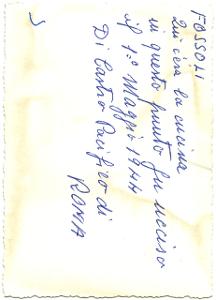 FOSSOLI
Qui c'era la cucina
in questo punto fu ucciso
il 1º Maggio 1944
Di Castro Pacifico di
ROMA